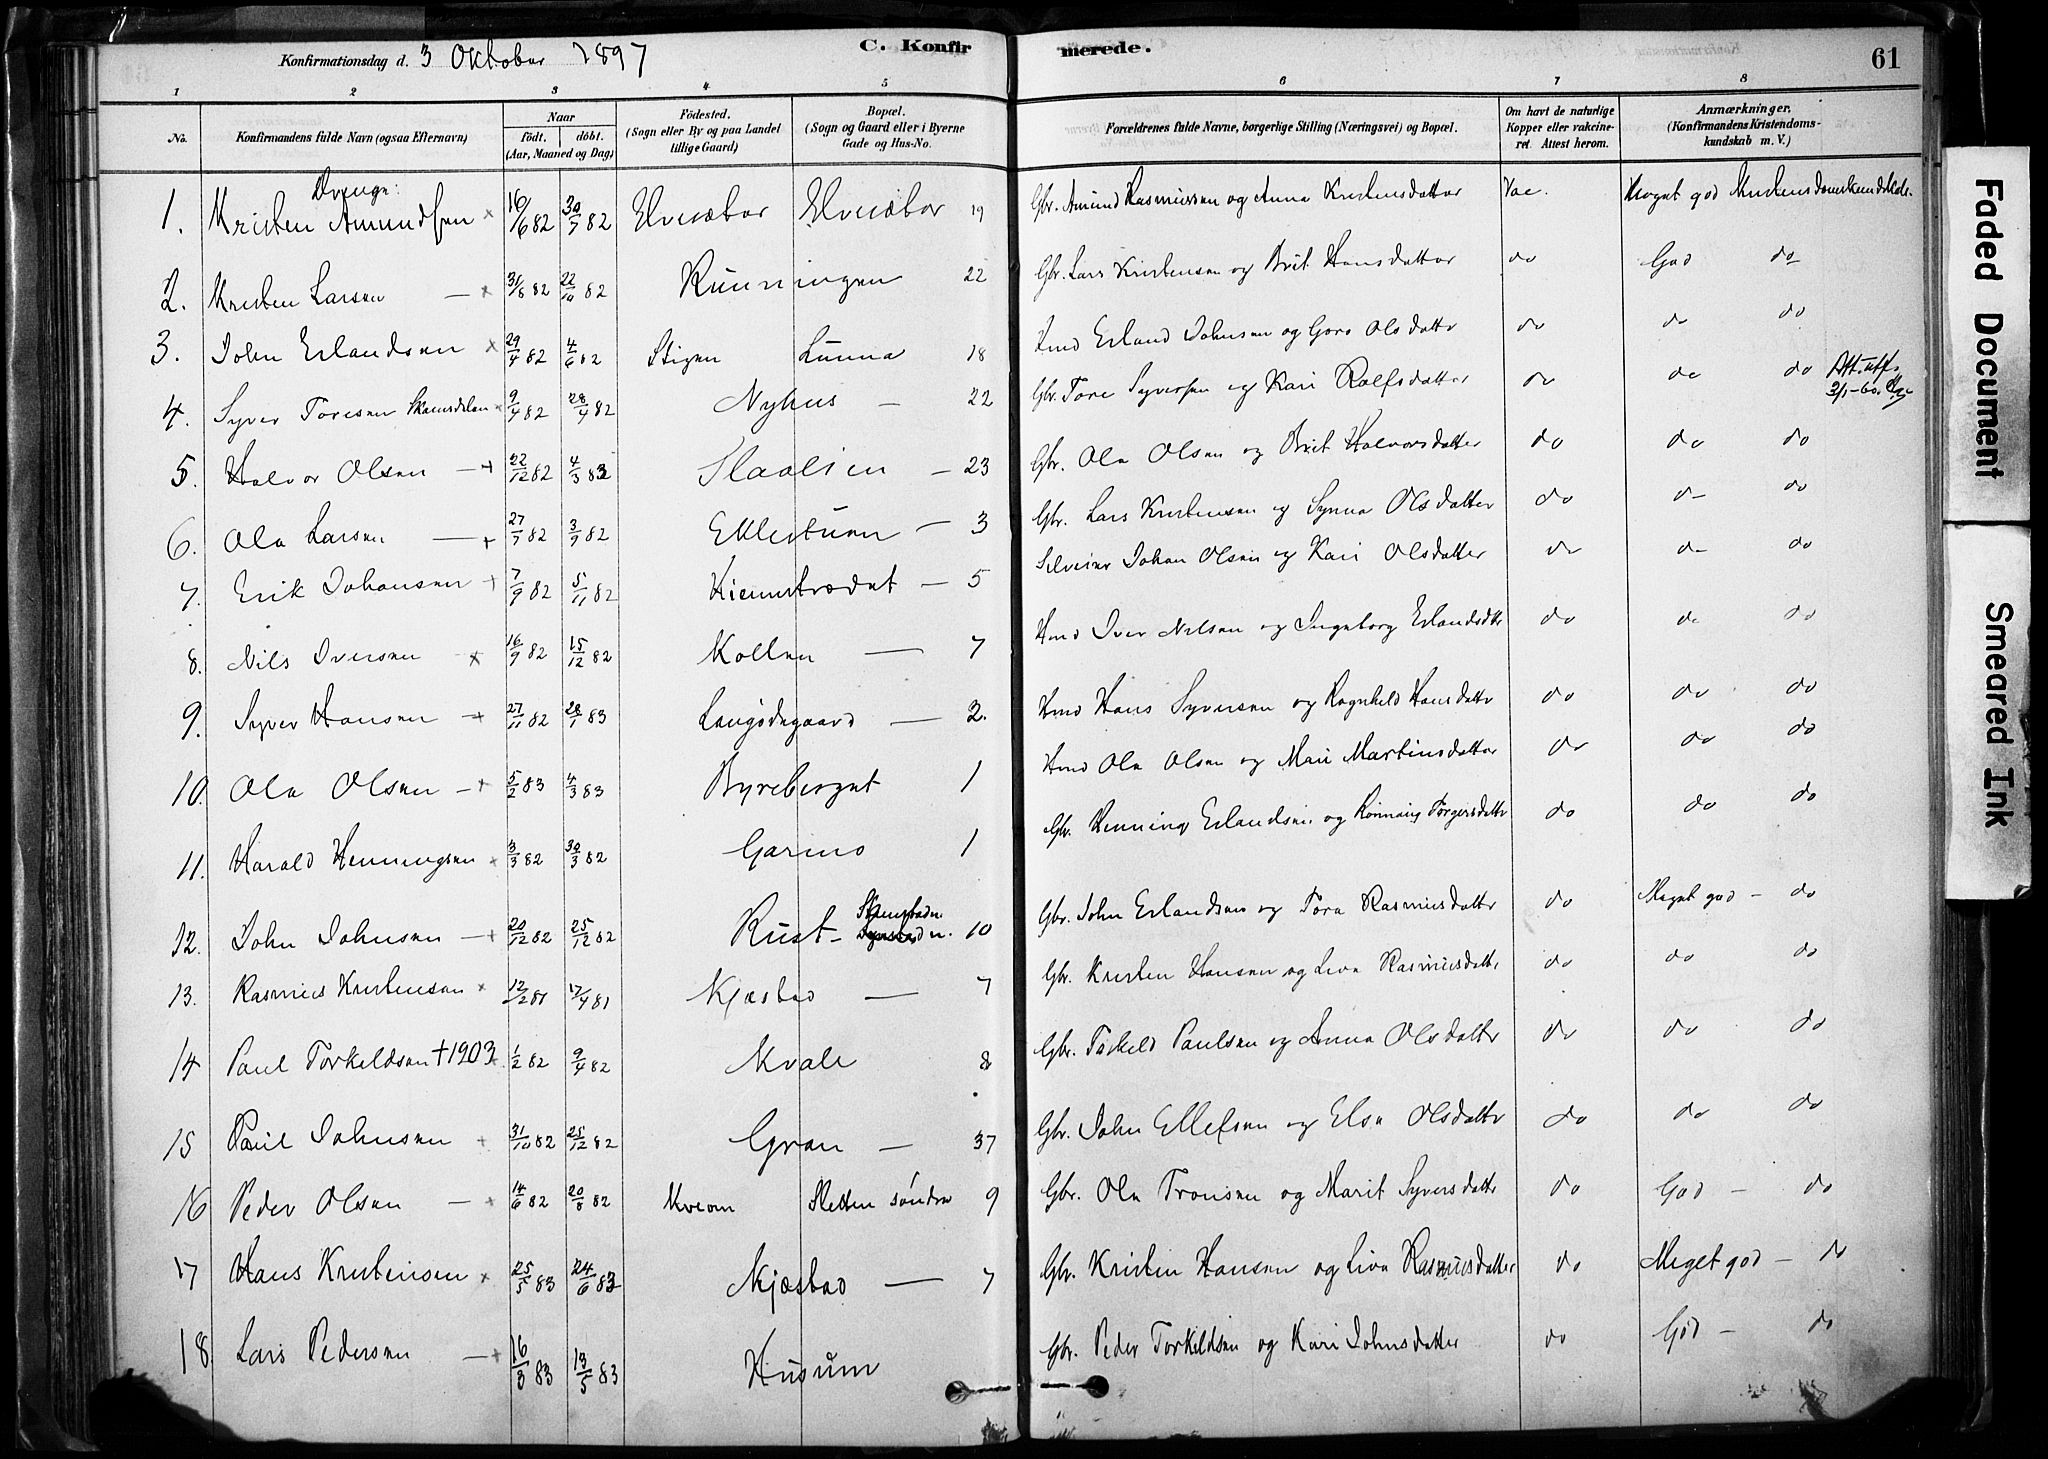 Konfirmationsdag d. 3 Oktober 1897
C. Konfirmerede.
61
1 2 3 4 5 6 7 8
No.
Konfirmandens fulde Navn (ogsaa Efternavn)
Naar født. døbt. (Aar, Maaned og Dag)
Födested. (Sogn eller By og paa Landet tillige Gaard)
Bopæl. (Sogn og Gaard eller i Byerne Gade og Hus-No.
Forældrenes fulde Navne, borgerlige Stilling (Næringsvei) og Bopæl.
Om havt de naturlige Kopper eller vakcineret. Attest herom.
Anmærkninger. (Konfirmandens Kristendomskundskab m. V.)
Drenge:
1. Kristen Amundsen × 16/6 82 30/7 82 Elvesæter Elvesæter 19 Gbr. Amund Rasmussen og Anna Kristensdatter Vac. Meget god Kristendomskundskab.
2. Kristen Larsen — × 31/8 82 22/10 82 Runningen 22 Gbr. Lars Kristensen og Brit Hansdatter do God do
3. John Erlandsen × 29/4 82 4/6 82 Stigen Lunna 18 Hmd Erland Johnsen og Goro Olsdattr do do do
4. Syver Toresen × 9/4 82 28/4 82 Nyhus — 22 Gbr. Tore Syversen og Kari Rolfsdatter do do do Att. utst. 2/1-60.
5. Halvor Olsen — + 22/12 82 4/3 83 Slaalien — 23 Gbr. Ola Olsen og Brit Halvorsdatter do do do
6. Ola Larsen — + 27/7 82 3/9 82 — 3 Gbr. Lars Kristensen og Synna Olsdatter do do do
7. Erik Johansen + 7/9 82 5/11 82 — 5 Johan Olsen og Kari Olsdatter do do do
8. Nils Iversen × 16/9 82 15/12 82 Kollen — 7 Hmd Iver Nilsen og Ingeborg Erlandsdtr do do do
9. Syver Hansen — + 27/11 82 28/1 83 — 2. Hmd Hans Syversen og Ragnhild Hansdattr do do do
10. Ola Olsen — + 5/2 83 4/3 83 Byreberget 1 Hmd Ola Olsen og Mari Martinsdatter do do do
11. Harald Henningsen × 3/3 82 30/3 82 Garmo 1 Gbr. Henning Erlandsen og Rønnaug Torgersdattr do do do
12. John Johnsen — + 20/12 82 25/12 82 Rust — 10 Gbr. John Erlandsen og Tora Rasmusdattr do Meget god — do
13. Rasmus Kristensen × 12/2 81 17/4 81 Kjæstad — 7 Gbr. Kristen Hansen og Liva Rasmusdattr do do do
14 Paul Torkeldsen †1903 × 1/2 82 9/4 82 Kvale 8 Gbr. Torkeld Paulsen og Anna Olsdattr do do do
15 Paul Johnsen + 31/10 82 25/12 82 Gran — 37 Gbr. John Ellefsen og Elsa Olsdattr do do do
16 Peder Olsen — + 14/6 82 20/8 82 Kvam Sletten søndre 9 Gbr. Ola Tronsen og Marit Syversdattr do God — do
17 Hans Kristensen × 25/5 83 24/6 83 Kjæstad — 7 Gbr. Kristen Hansen og Liva Rasmusdatter do Meget god — do
18. Lars Pedersen — + 16/3 83 13/5 83 Husum Gbr. Peder Torkildsen og Kari Johnsdatter do God — do
Faded Document
Smeared Ink